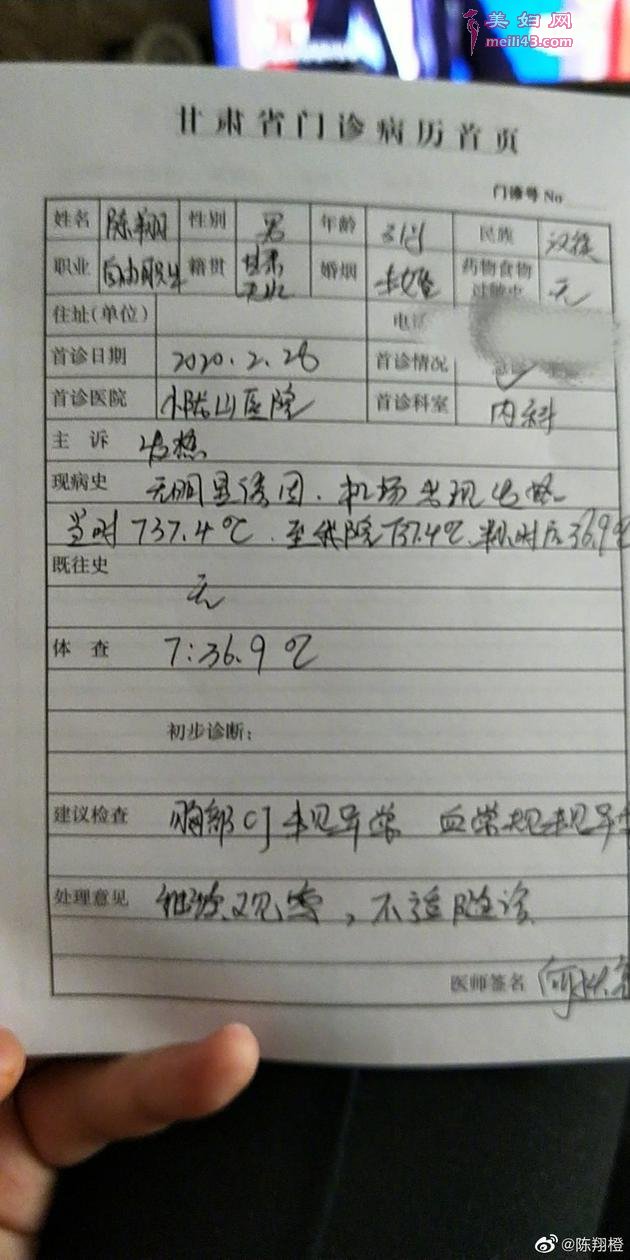 美妇网
meili43.com
甘肃省门诊病历首页
门诊号 No
姓名 陈翔 性别 男 年龄 31岁 民族 汉族
职业 自由职业 籍贯 甘肃天水 婚烟 未婚 药物食物过敏史 无
住址(单位) 电话
首诊日期 2020.2.28 首诊情况 急诊
首诊医院 小陇山医院 首诊科室 内科
主 诉 发热
现病史 无明显诱因.机场发现发热
当时T37.4℃.至我院T37.4℃.半小时后36.9℃
既往史
无
体 查 T:36.9℃
初步诊断:
建议检查 胸部CT未见异常 血常规未见异常
处理意见 继续观察,不适随诊
医师签名
@陈翔橙